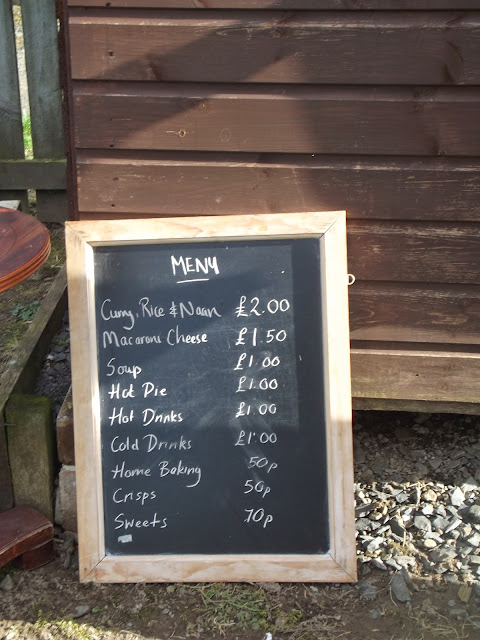 MENU
Curry, Rice & Naan £2.00
Macaroni Cheese £1.50
Soup £1.00
Hot Pie £1.00
Hot Drinks £1.00
Cold Drinks £1.00
Home Baking 50p
Crisps 50p
Sweets 70p